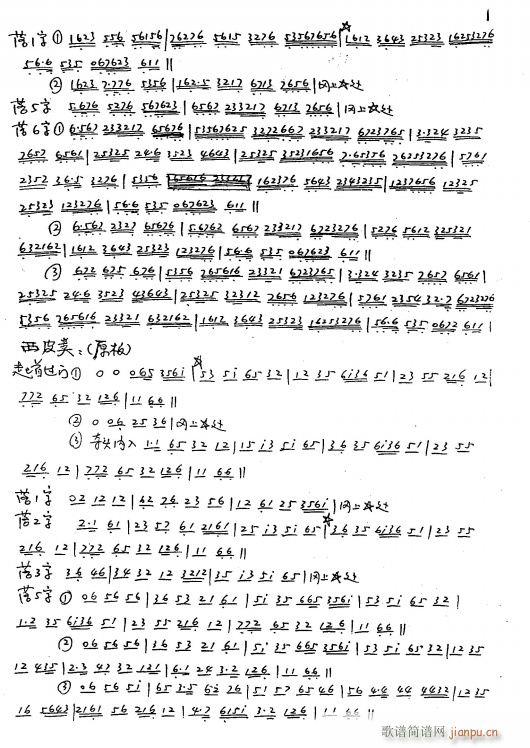 1
落1字 ① 1623 556 56156 | 76276 5615 3276 53567656 | ☆1612 3643 25323 16253276
56·6 535 067623 611 ‖
② 1623 7·776 5356 | 162·5 3217 6713 7656 | 同上
落5字 5·676 5276 567623 | 6567 233217 6713 7656 | 同上
落6字 ① 6·567 233217 65676 | 53567625 3272667 233217 6723765 | 3·324 3235
7657 6561 | 25325 24·6 3523 4643 | 25325 35231656 7·65356 76253276 | 5761
2352 36·5 3276 | 5356 162376 5643 2343235 | 1237656 12325
25323 123276 | 56·6 535 067623 611 ‖
② 6·563 2327 65676 | 56763 6567 233217 6723276 | 5276 5612 325321
632162 | 1612 3643 25323 123276 | 56·6 535 067623 611 ‖
③ 672 675 676 | 5356 765616 23321 6723765 | 3·324 3235 7657 6561 |
25325 24·6 3523 43643 | 25325 32312 7656 123276 | 5761 2354 32·7 6723276
5356 765616 23321 632162 | 1612 3643 25323 16253276 | 56·6 535 0672 611 |
西皮类:(原板)
起首过门 ① 0 0 065 356i | ☆53 5i 65 32 | 12 35 6i36 51 | 23 55 216 12 |
772 65 32 126 | 11 66 ‖
② 0 06 25 36 | 同上
③ 1·1 65 32 12 | 15 i3 5i 65 | 36 35 6i36 51 | 23 55
216 12 | 772 65 32 126 | 11 66 ‖
落1字 02 12 12 | 62 76 23 56 | 12 61 25 356i | 同上
落2字 2·1 61 | 23 57 61 2161 | 25 i3 5i 65 | ☆36 35 6i36 51 | 23 55
216 12 | 772 65 32 126 | 11 66 ‖
落3字 36 46 | 34 32 12 3212 | 35 i3 5i 65 | 同上
落5字 ① 06 56 56 | 36 53 21 61 | 5i 35 665 356i | 53 5i 65 32 |
1·2 35 6i36 51 | 23 55 216 12 | 772 65 32 126 | 11 66 ‖
② 06 56 56 | 36 53 21 61 | 5i 35 665 356i | 53 5i 65 32 | 12 35
12 435 | 2·3 43 32 121 | 6·1 24 3·2 126 | 11 66 ‖
③ 06 56 5i | 65 3·5 6i 76 | 51 57 65 46 | 56 4·4 44 4432 | 12 35
16 5643 | 2161 216 12 | 4·7 615i 3·2 126 | 11 66 ‖
歌谱简谱网
jianpu.cn